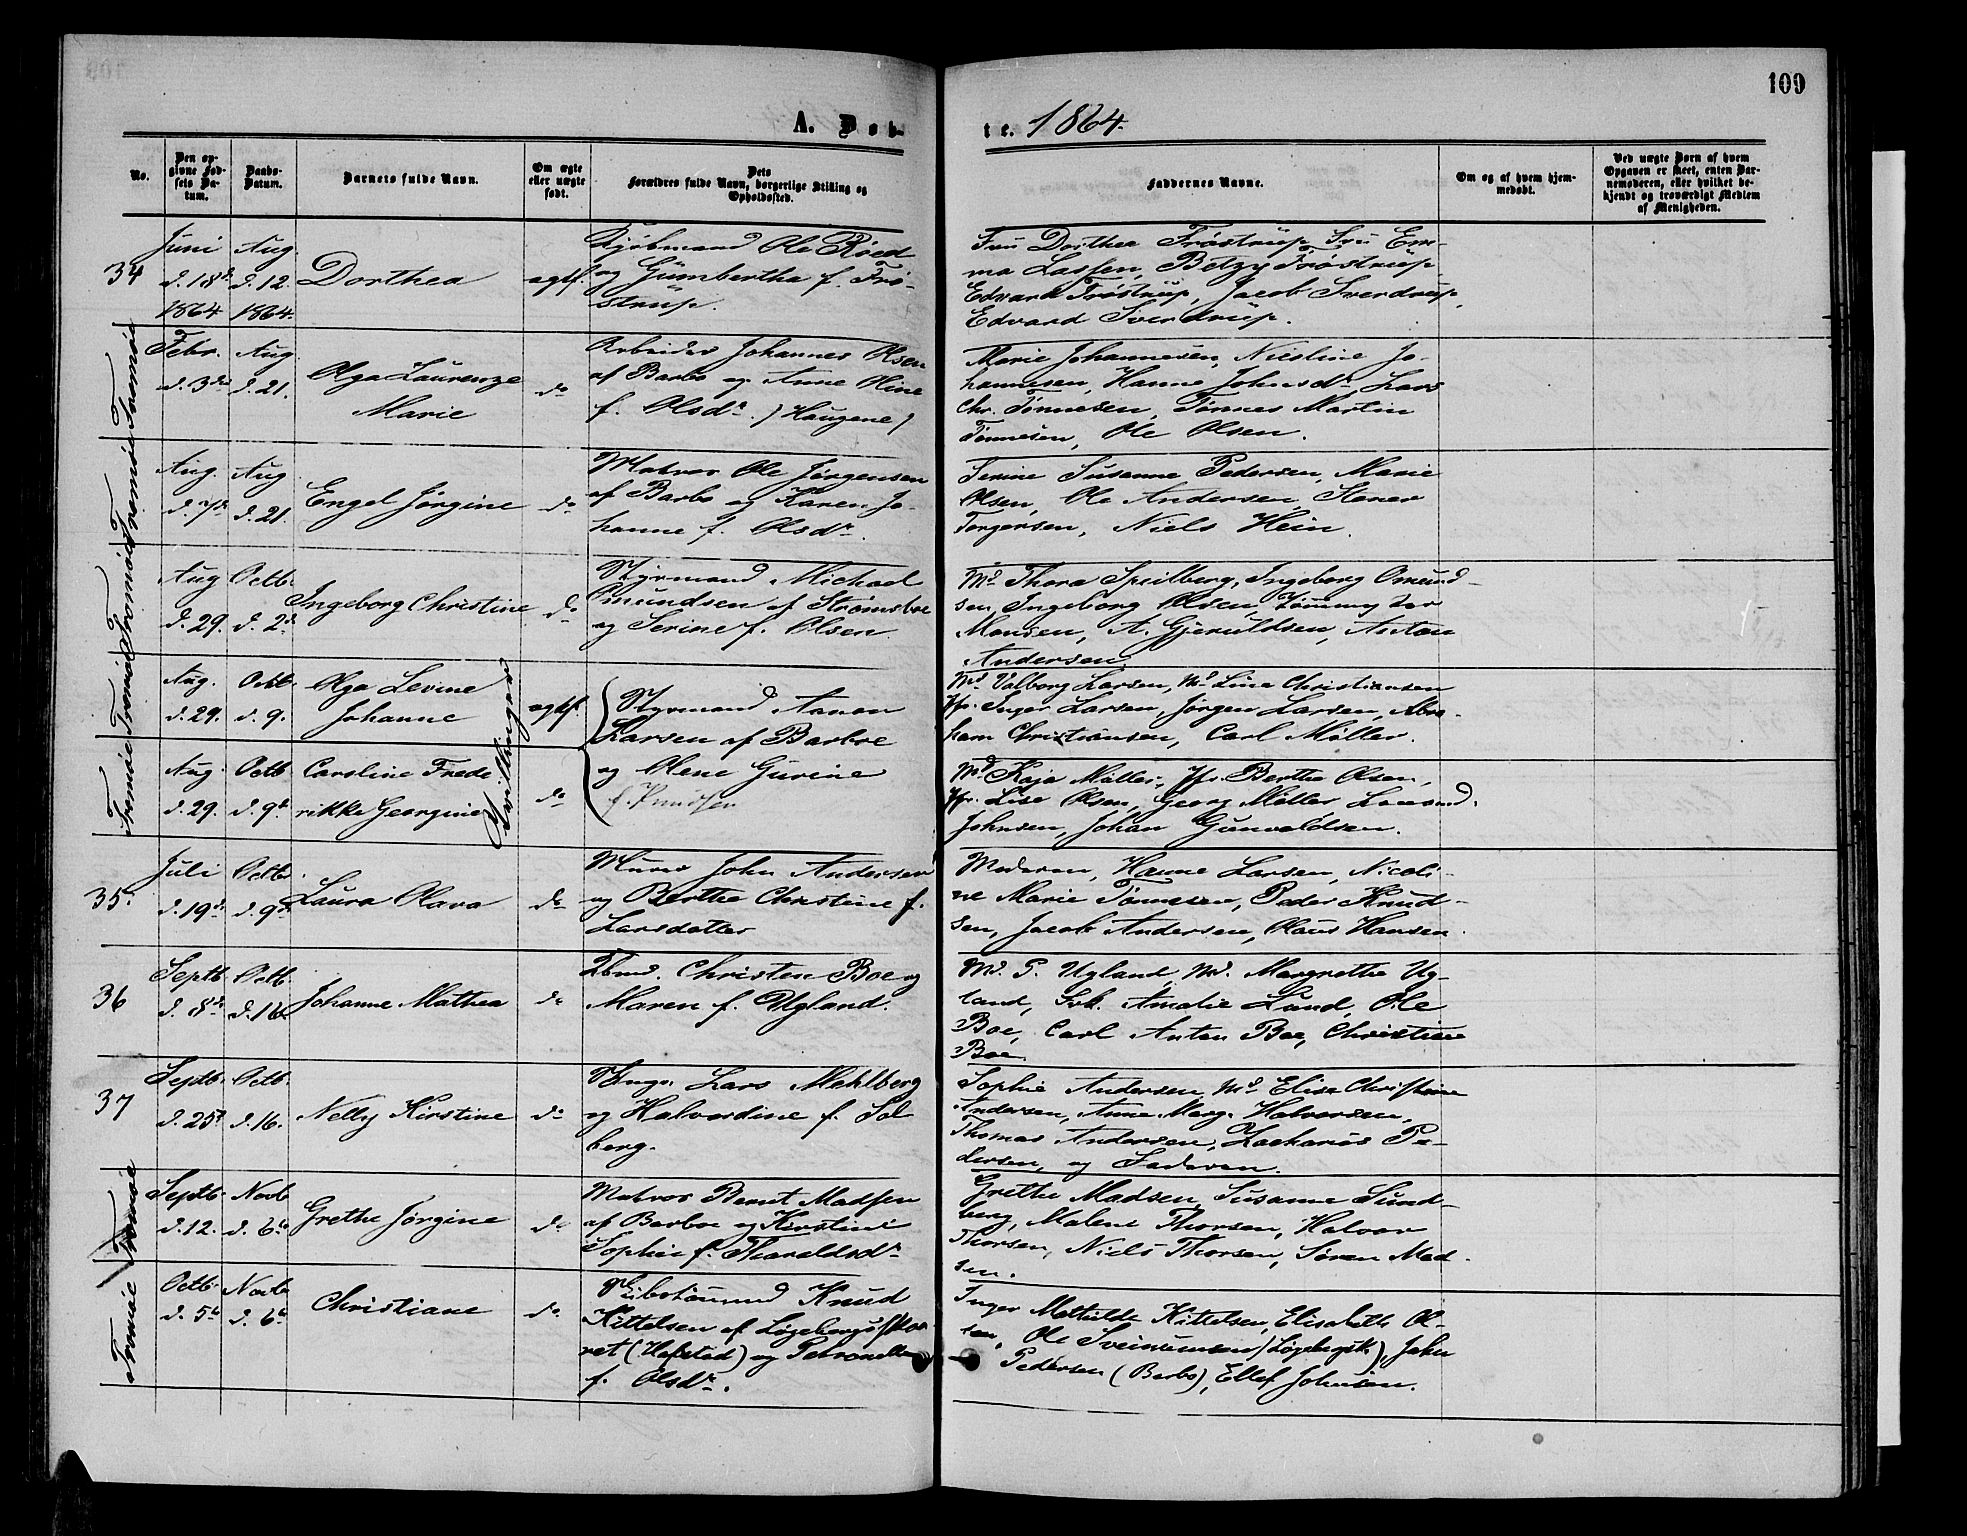 109
A. Døb-
te. 1864.
No.
Den op-
givne Fød-
sels Da-
tum.
Daabs-
Datum.
Barnets fulde Navn.
Om ægte
eller uægte
født.
Dets
Forældres fulde Navn, borgerlige Stilling og
Opholdssted.
Faddernes Navne.
Om og af hvem hjem-
medøbt.
Ved uægte Børn af hvem
Opgaven er skeet, enten Bar-
nemoderen, eller hvilket be-
kjendt og troværdigt Medlem
af Menigheden.
34
Juni
d. 18de
1864
Aug.
d. 12.
1864.
Dorthea
ægtf.
Kjøbmand Ole Røed
og Gumbertha f. Frö-
strup.
Fru Dorthea Fröstrup, Fru Em-
ma Lassen, Betzy Fröstrup
Edvard Fröstrup, Jacob Sverdrup,
Edvard Sverdrup.
Tromøe
Febr.
d. 3die
Aug.
d. 21.
Olga Laurenze
Marie
do
Arbeider Johannes Olsen
af Barbo og Anne Oline
f. Olsdr. (Haugene)
Marie Johannesen, Nicoline Jo-
hannesen, Hanne Johnsdr. Lars
Chr. Tønnesen, Tønnes Martin
Tønnesen, Ole Olsen.
Tromøe
Aug.
d. 7de
Aug
d. 21.
Engel Jørgine
do
Matros Ole Jørgensen
af Barbo og Karen Jo-
hanne f. Olsdr.
Serine Susanne Pedersen, Marie
Olsen, Ole Andersen, Stener
Torgersen, Niels Hein.
Tromøe
Aug
d. 29.
Octb.
d. 2d.
Ingeborg Christine
do
Styrmand Michael
Omundsen af Strømsboe
og Serine f. Olsen
Md. Thora Spilberg, Ingeborg Omund-
sen, Ingeborg Olsen, Tømmyster
Monsen, A. Gjeruldsen, Anton
Andersen
Tromøe
Aug.
d. 29.
Octb.
d. 9.
Olga Levine
Johanne
Tvillinger
ægtf.
Styrmand Aanon
Larsen af Barboe
og Olene Gurine
f. Knudsen
Md. Valborg Larsen, Md. Lina Christiansen
Jfr. Inger Larsen, Jørgen Larsen, Abra-
ham Christiansen, Carl Møller.
Tromøe
Aug.
d. 29.
Octb
d. 9d.
Caroline Frede
rikke Georgine
do
Md. Kaja Møller, Jfr. Berthe Olsen,
Jfr. Lise Olsen, Georg Møller
Johnsen, Johan Gunvaldsen.
35.
Juli
d. 19d.
Octb.
d. 9d.
Laura Olava
do
Murer John Andersen
og Berthe Christine f.
Larsdatter
Moderen, Hanne Larsen, Nicoli-
ne Marie Tønnesen, Peder Knud-
sen, Jacob Andersen, Olaus Hansen.
36
Septb.
d. 8de
Octb.
d. 16
Johanne Mathea
do
Christen Boe og
Maren f. Ugland.
Md. P. Ugland, Md. Margrethe Ug-
land, Frk. Amalie Lund, Ole
Boe, Carl Anton Boe, Christine
Boe
37
Septb.
d. 25d.
Octb.
d. 16.
Nelly Kirstine
do
Lars Mehlberg
og Halvordine f. Sol
berg.
Sophie Andersen, Md. Elise Christine
Andersen, Anne Marg. Halvorsen,
Thomas Andersen, Zacharias Pe-
dersen, og Faderen.
Tromøe
Septb.
d. 12.
Novb
d. 6te
Grethe Jørgine
do
Matros Bernt Madsen
af Barboe og Kirstine
Sophie f. Tharaldsdr.
Grethe Madsen, Susanne Lund-
berg, Malene Thorsen, Halvor
Thorsen, Niels Thorsen, Søren Mad-
sen.
Tromøe
Octb.
d. 5te
Novb
d. 6te
Christiane
do
Skibstømmerd Knud
Kittelsen af
ret (Hafstad) og Petronelle
f. Olsdr.
Inger Mathilde Kittelsen, Elisabeth Ol-
sen, Ole Sveinunsen (Løgebergsk), John
Pedersen (Barbo), Ellef Johnsen.